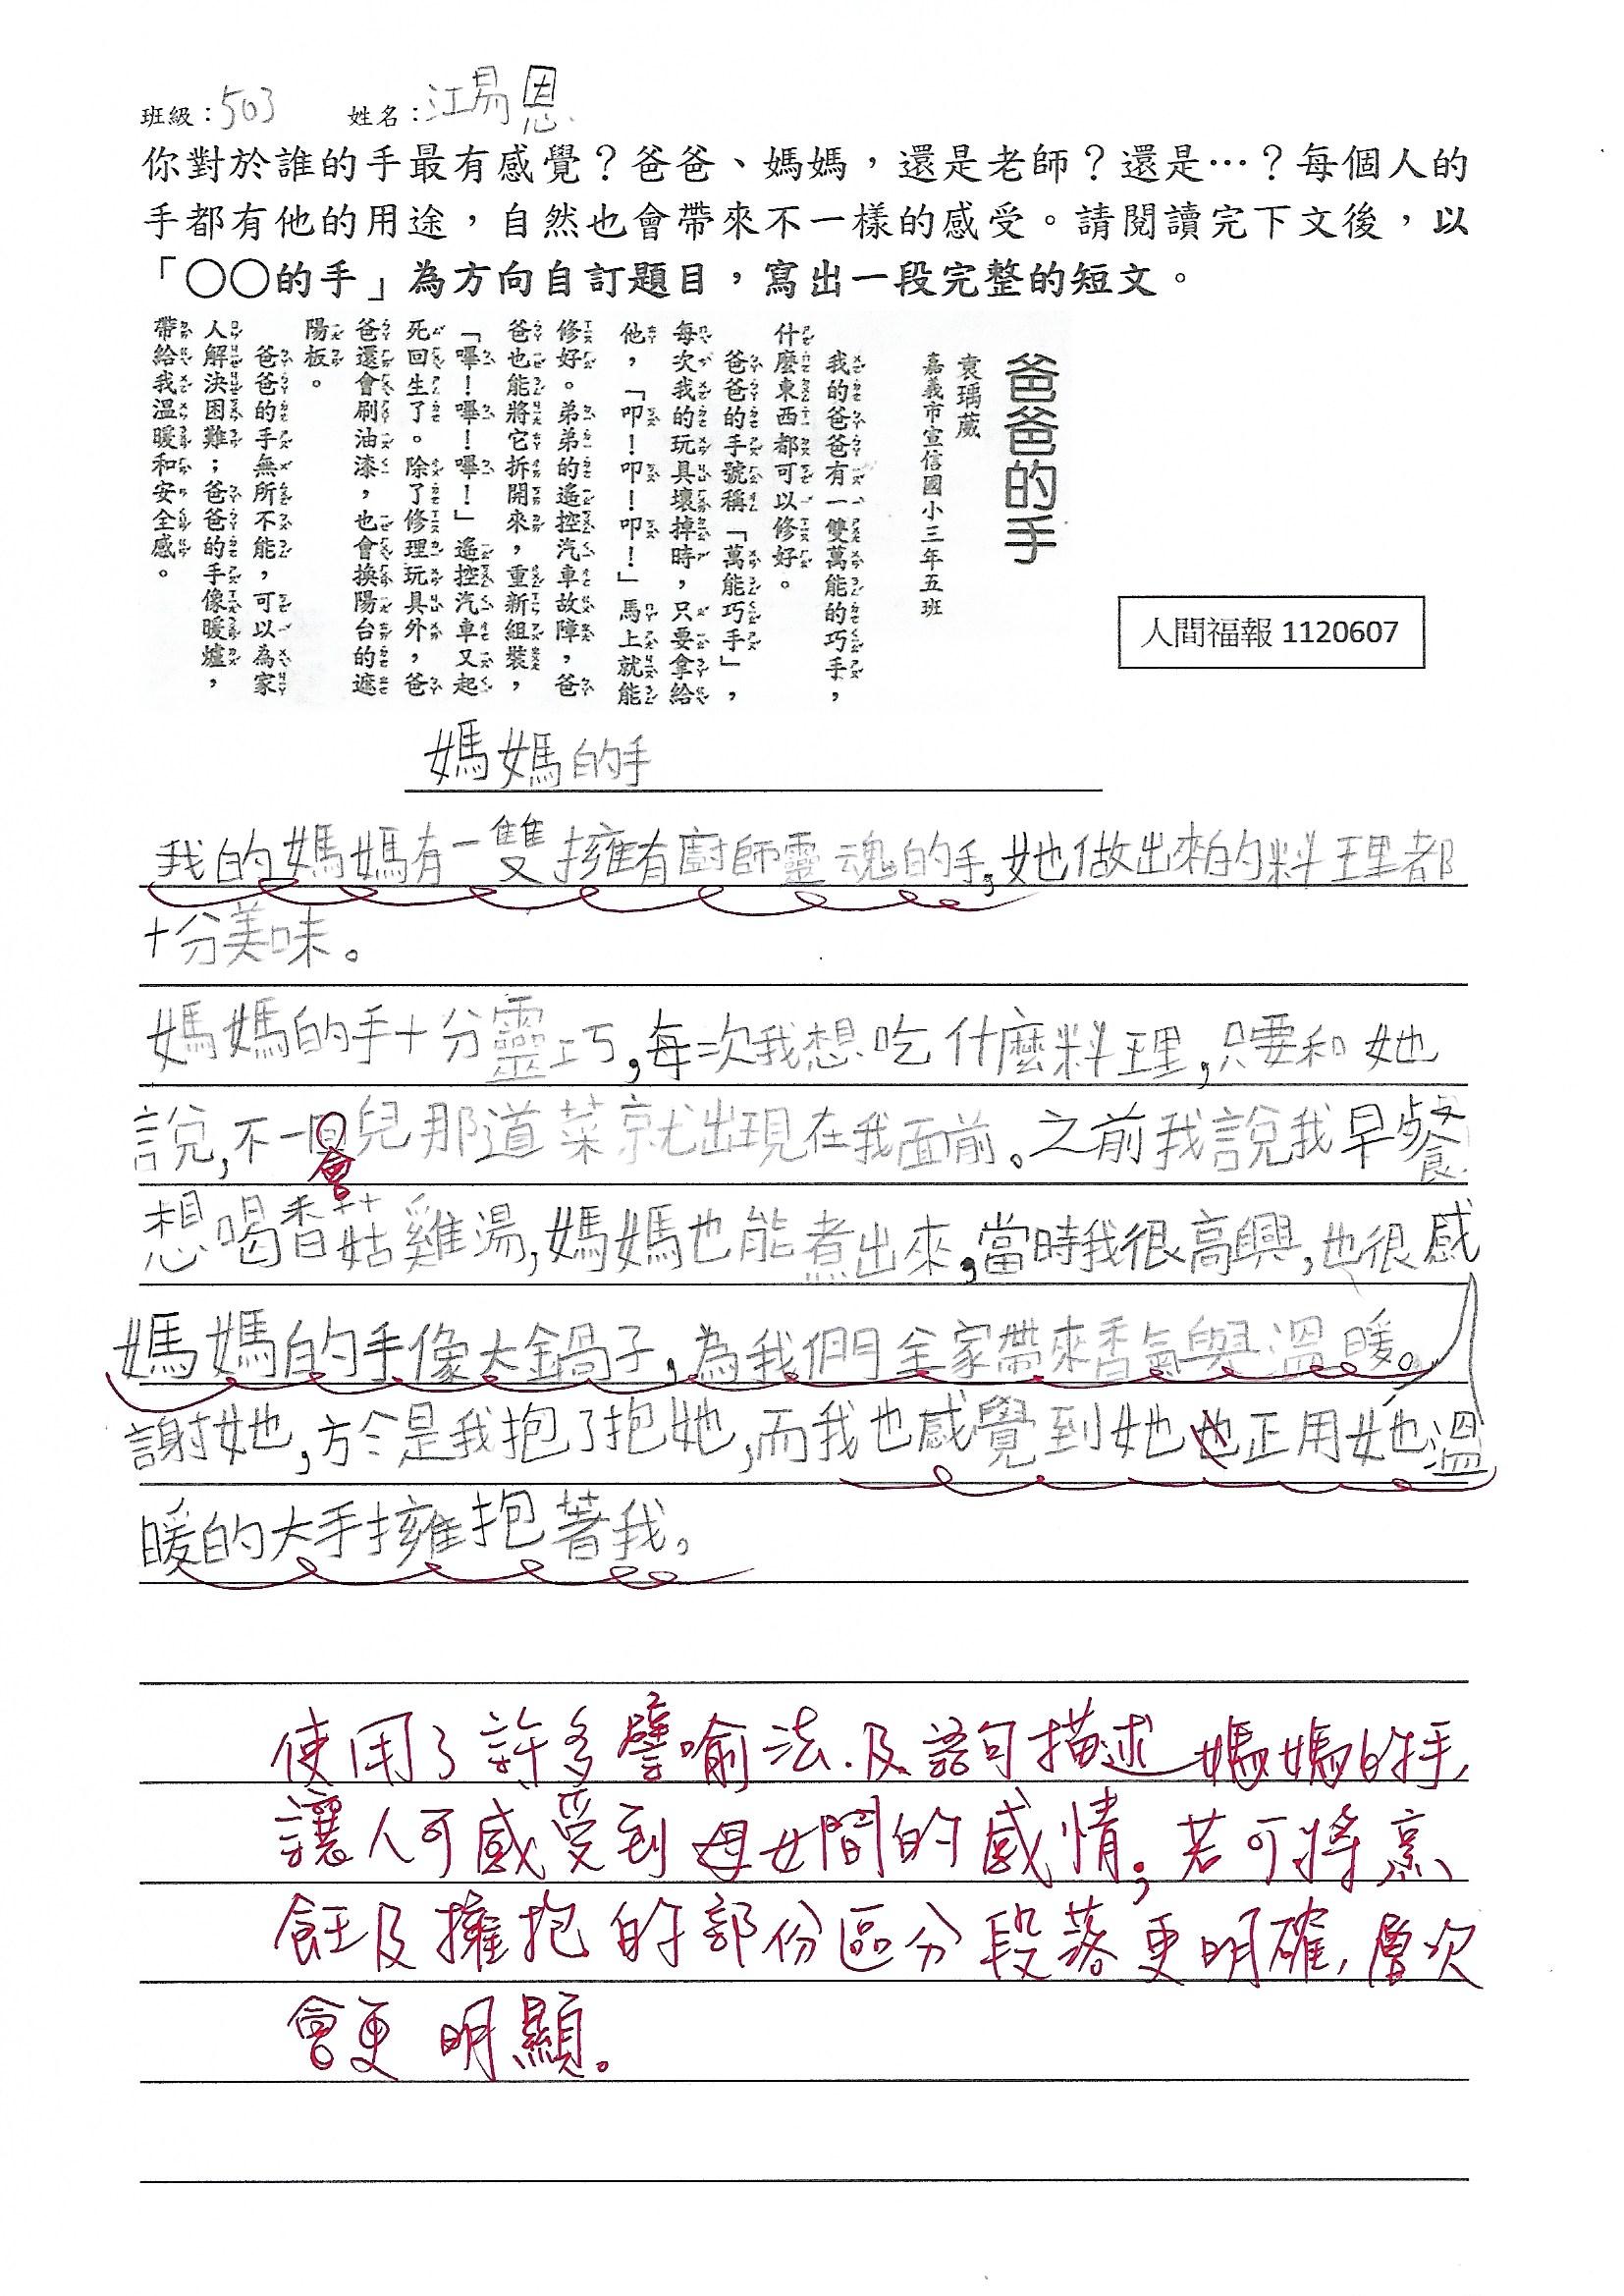 班級：503 姓名：江易恩
你對於誰的手最有感覺？爸爸、媽媽，還是老師？還是…？每個人的
手都有他的用途，自然也會帶來不一樣的感受。請閱讀完下文後，以
「○○的手」為方向自訂題目，寫出一段完整的短文。
爸爸的手
袁瑀葳
嘉義市宣信國小三年五班
我的爸爸有一雙萬能的巧手，
什麼東西都可以修好。
爸爸的手號稱「萬能巧手」，
每次我的玩具壞掉時，只要拿給
他，「叩！叩！叩！」馬上就能
修好。弟弟的遙控汽車故障，爸
爸也能將它拆開來，重新組裝，
「嗶！嗶！嗶！」遙控汽車又起
死回生了。除了修理玩具外，爸
爸還會刷油漆，也會換陽台的遮
陽板。
爸爸的手無所不能，可以為家
人解決困難；爸爸的手像暖爐，
帶給我溫暖和安全感。
人間福報 1120607
媽媽的手
我的媽媽有一雙擁有廚師靈魂的手，她做出來的料理都
十分美味。
媽媽的手十分靈巧，每次我想吃什麼料理，只要和她
說，不一兒那道菜就出現在我面前。之前我說我早餐
會
想喝香菇雞湯，媽媽也能煮出來，當時我很高興，也很感
媽媽的手像大鍋子，為我們全家帶來香氣與溫暖。
謝她，於是我抱了抱她，而我也感覺到她也正用她溫
暖的大手擁抱著我。
使用了許多譬喻法．及語句描述媽媽的手，
讓人可感受到母女間的感情；若可將烹
飪及擁抱的部份區分段落更明確，層次
會更明顯。